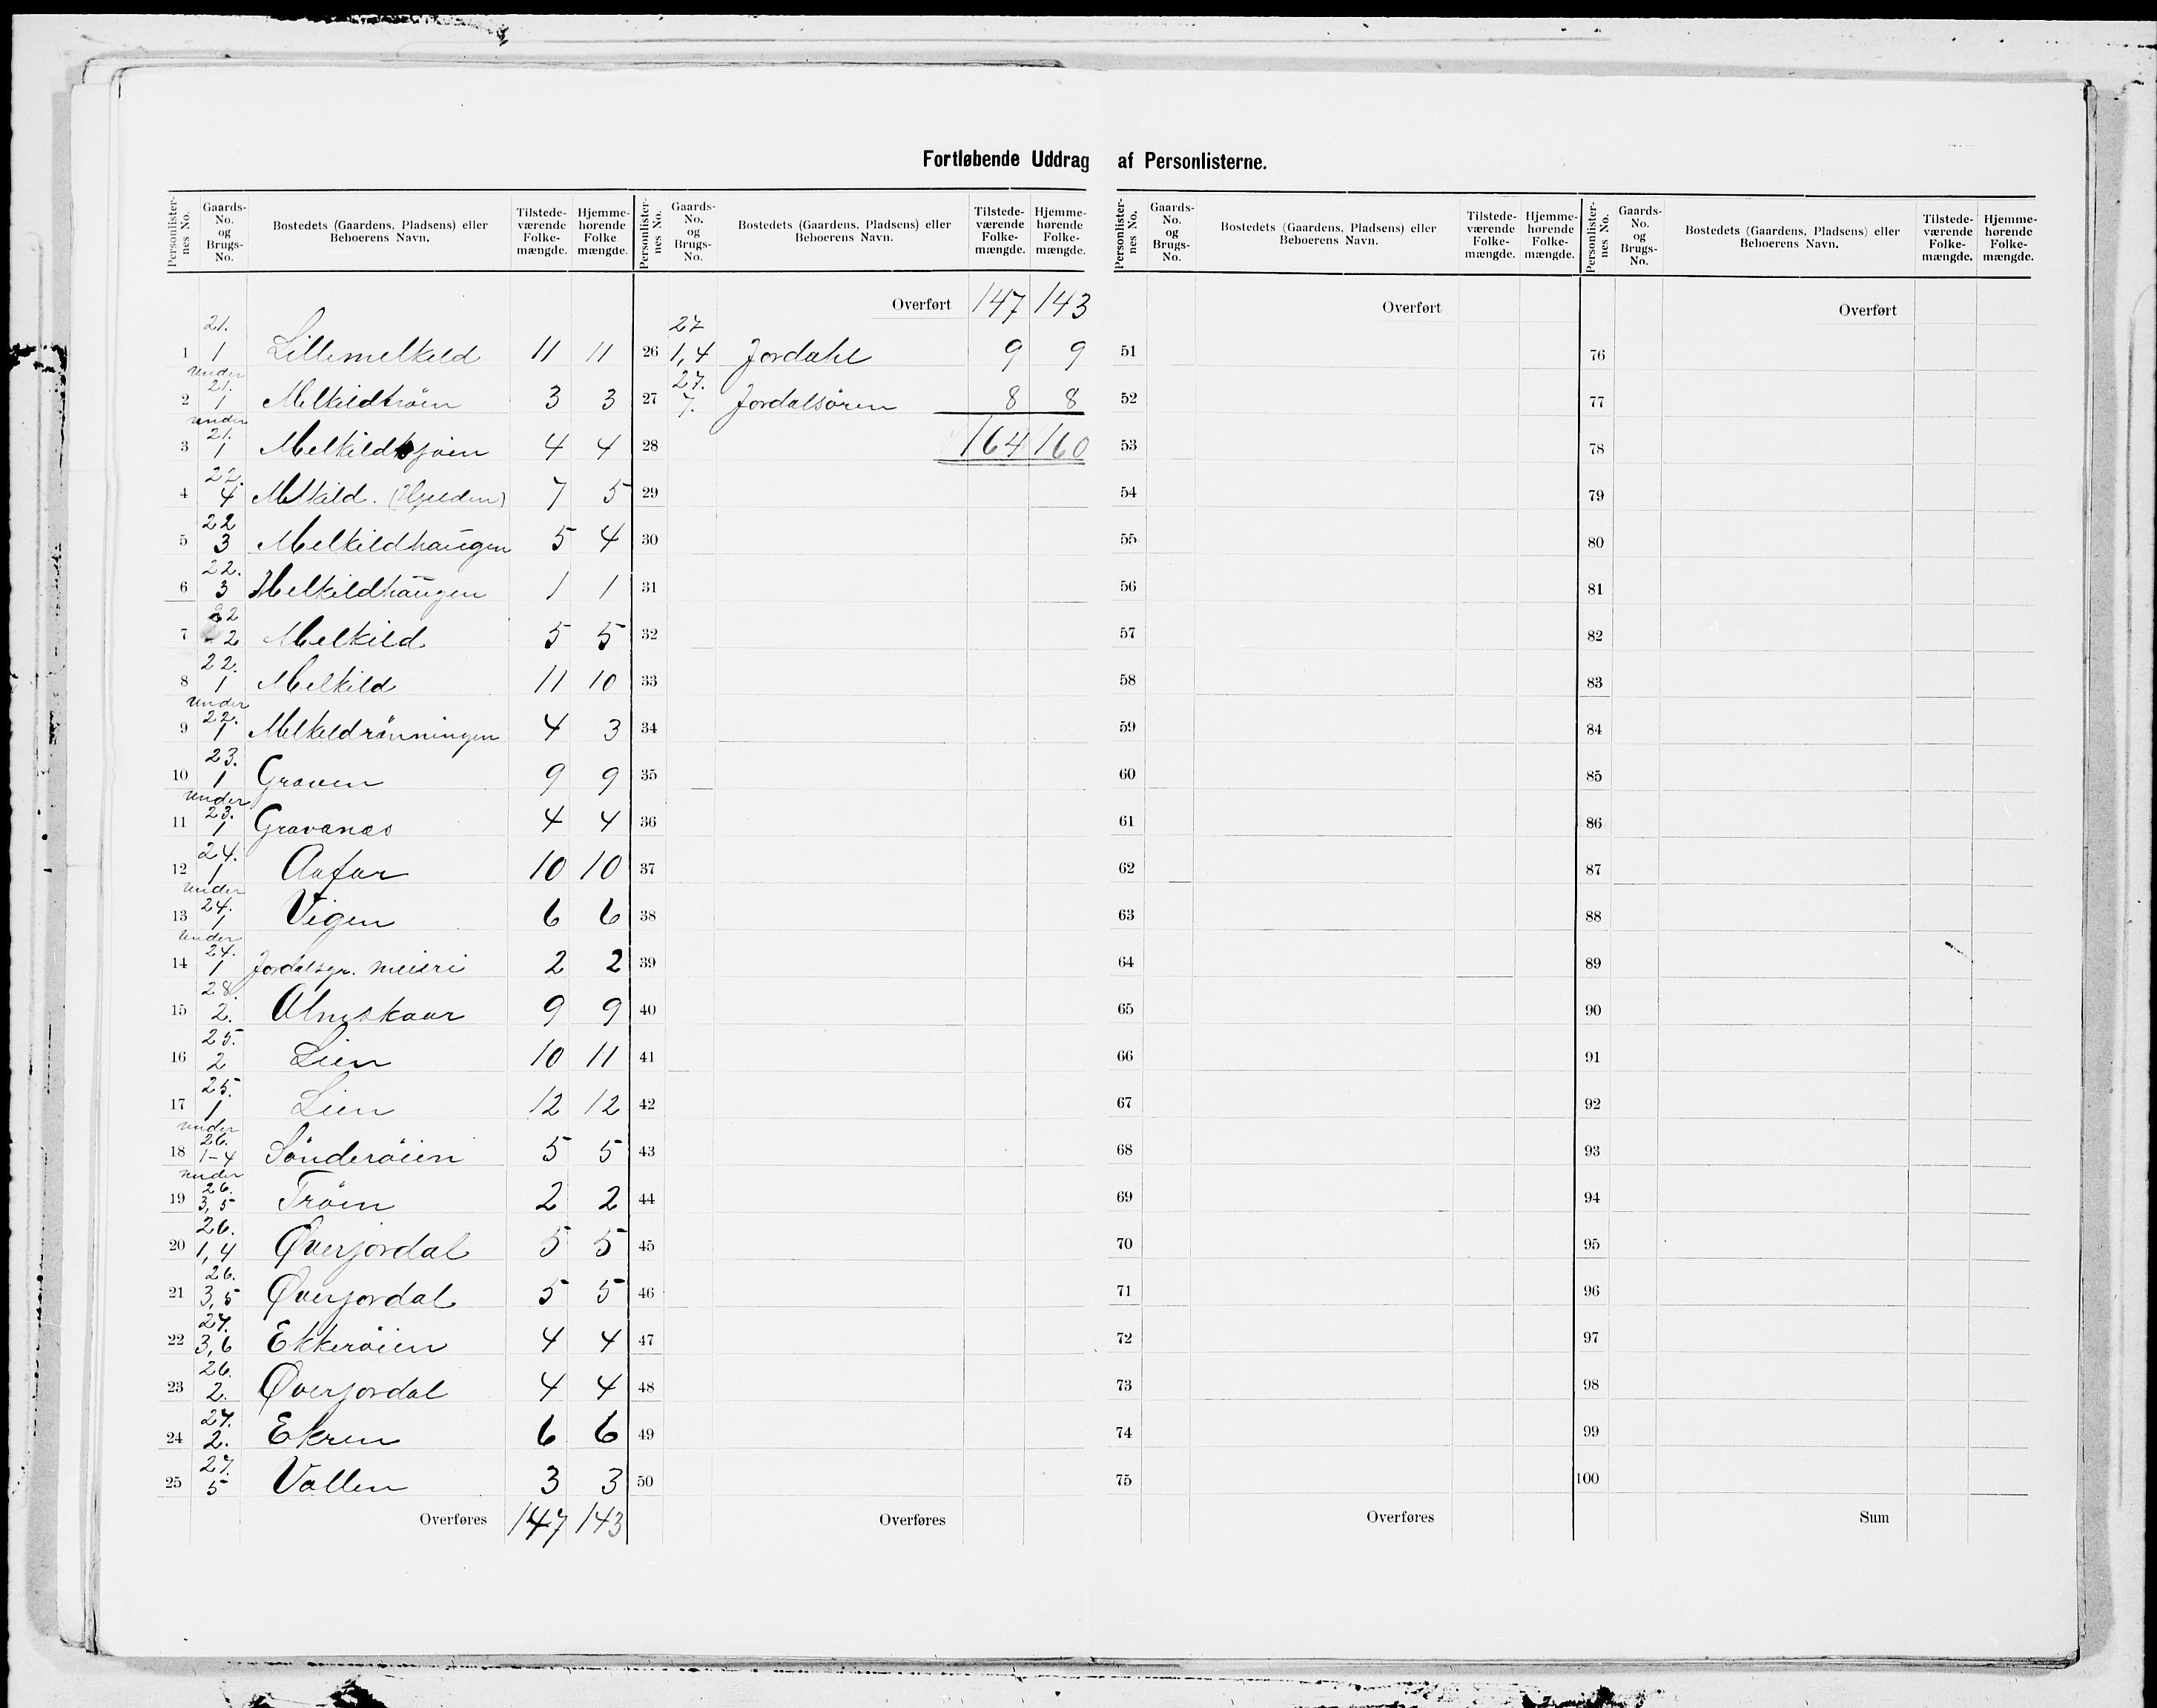 Fortløbende Uddrag af Personlisterne.
Personlister-nes No. | Gaards-No. og Brugs-No. | Bostedets (Gaardens, Pladsens) eller Beboerens Navn. | Tilstede-værende Folke-mængde. | Hjemme-hørende Folke mængde.
1 | 21. 1 | Lillemelkild | 11 | 11
2 | under 21. 1 | Melkildtröen | 3 | 3
3 | under 21. 1 | 4 | 4
4 | 22. 4 | Melkild. | 7 | 5
5 | 22 3 | Melkildhaugen | 5 | 4
6 | 22. 3 | Melkildhaugen | 1 | 1
7 | 22 2 | Melkild | 5 | 5
8 | 22. 1 | Melkild | 11 | 10
9 | under 22. 1 | Melkildrönningen | 4 | 3
10 | 23. 1 | Graven | 9 | 9
11 | under 23. 1 | Gravanæs | 4 | 4
12 | 24. 1 | 10 | 10
13 | under 24. 1 | Vigen | 6 | 6
14 | under 24. 1 | Jordalsgr. meieri | 2 | 2
15 | 28. 2. | Almskaar | 9 | 9
16 | 25. 2 | Lien | 10 | 11
17 | 25. 1 | Lien | 12 | 12
18 | under 26. 1-4 | Sönderöien | 5 | 5
19 | under 26. 3,5 | Tröen | 2 | 2
20 | 26. 1,4 | Øverjordal | 5 | 5
21 | 26. 3,5 | Øverjordal | 5 | 5
22 | 27. 3,6 | Ekkeröien | 4 | 4
23 | 26. 2. | Øverjordal | 4 | 4
24 | 27. 2. | Ekren | 6 | 6
25 | 27. 5 | Vollen | 3 | 3
Overføres | 147 | 143
Personlister-nes No. | Gaards-No. og Brugs-No. | Bostedets (Gaardens, Pladsens) eller Beboerens Navn. | Tilstede-værende Folke-mængde. | Hjemme-hørende Folke-mængde.
Overført | 147 | 143
26 | 27 1,4 | Jordahl | 9 | 9
27 | 27. 7. | Jordalsören | 8 | 8
28 | 164 | 160
29
30
31
32
33
34
35
36
37
38
39
40
41
42
43
44
45
46
47
48
49
50
Overføres
Personlister-nes No. | Gaards-No. og Brugs-No. | Bostedets (Gaardens, Pladsens) eller Beboerens Navn. | Tilstede-værende Folke-mængde. | Hjemme-hørende Folke-mængde.
Overført
51
52
53
54
55
56
57
58
59
60
61
62
63
64
65
66
67
68
69
70
71
72
73
74
75
Overføres
Personlister-nes No. | Gaards-No. og Brugs-No. | Bostedets (Gaardens, Pladsens) eller Beboerens Navn. | Tilstede-værende Folke-mængde. | Hjemme-hørende Folke-mængde.
Overført
76
77
78
79
80
81
82
83
84
85
86
87
88
89
90
91
92
93
94
95
96
97
98
99
100
Sum